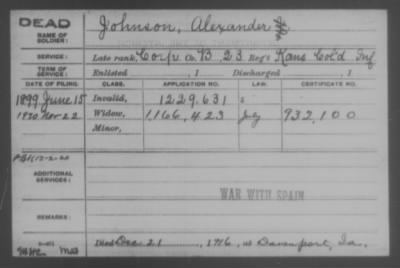 DEAD
NAME OF SOLDIER: Johnson, Alexander
SERVICE: Late rank, Corp Co. B, 23 Reg't Kans Col'd Inf
TERM OF SERVICE: Enlisted , 1 Discharged , 1
DATE OF FILING. CLASS. APPLICATION NO. LAW. CERTIFICATE NO.
1899 June 15 Invalid, 1229.631
1920 Nov. 22 Widow, 1,166,423 932,100
Minor,
ADDITIONAL SERVICES:
WAR WITH SPAIN
REMARKS:
Died Dec. 21, 1916, at Davenport, Ia.